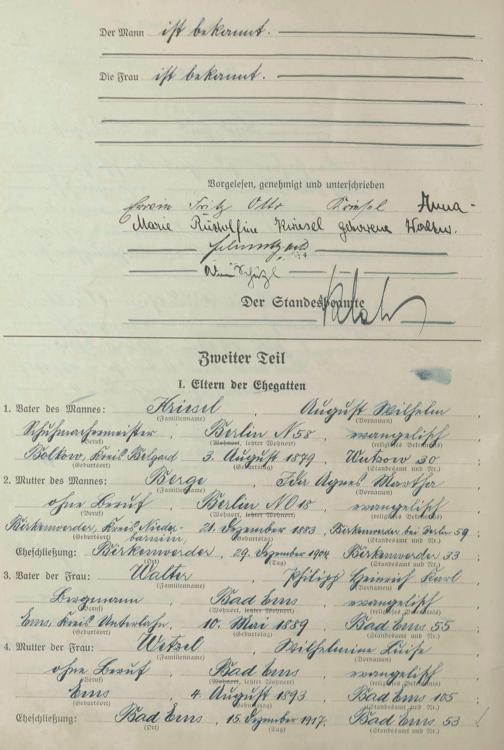 Der Mann ist bekannt.
Die Frau ist bekannt.
Vorgelesen, genehmigt und unterschrieben
Erwin Fritz Otto Kriesel Anna-
Marie Rudolfine Kriesel geborene Walter.
Der Standesbeamte
Zweiter Teil
I. Eltern der Ehegatten
1. Vater des Mannes: Kriesel, August Wilhelm
(Familienname) (Vornamen)
Schuhmachermeister, Berlin N 58, evangelisch
(Beruf) (Wohnort, letzter Wohnort) (religiöses Bekenntnis)
Bolkow, Kreis Belgard 3. August 1879, Wutzow 30;
(Geburtsort) (Geburtstag) (Standesamt und Nr.)
2. Mutter des Mannes: Berge, Ida Agnes Martha
(Familienname) (Vornamen)
ohne Beruf, Berlin NO 18, evangelisch
(Beruf) (Wohnort, letzter Wohnort) (religiöses Bekenntnis)
Birkenwerder, Kreis Nieder-barnim, 21. Dezember 1883, Birkenwerder bei Berlin 59;
(Geburtsort) (Geburtstag) (Standesamt und Nr.)
Eheschließung: Birkenwerder, 29. Dezember 1904, Birkenwerder 33
(Ort) (Tag) (Standesamt und Nr.)
3. Vater der Frau: Walter, Philipp Heinrich Karl
(Familienname) (Vornamen)
Bergmann, Bad Ems, evangelisch
(Beruf) (Wohnort, letzter Wohnort) (religiöses Bekenntnis)
Ems, Kreis Unterlahn, 10. Mai 1889, Bad Ems 55;
(Geburtsort) (Geburtstag) (Standesamt und Nr.)
4. Mutter der Frau: Wetzel, Wilhelmine Luise
(Familienname) (Vornamen)
ohne Beruf, Bad Ems, evangelisch
(Beruf) (Wohnort, letzter Wohnort) (religiöses Bekenntnis)
Ems, 4. August 1893, Bad Ems 105
(Geburtsort) (Geburtstag) (Standesamt und Nr.)
Eheschließung: Bad Ems, 15. Dezember 1917, Bad Ems 53
(Ort) (Tag) (Standesamt und Nr.)